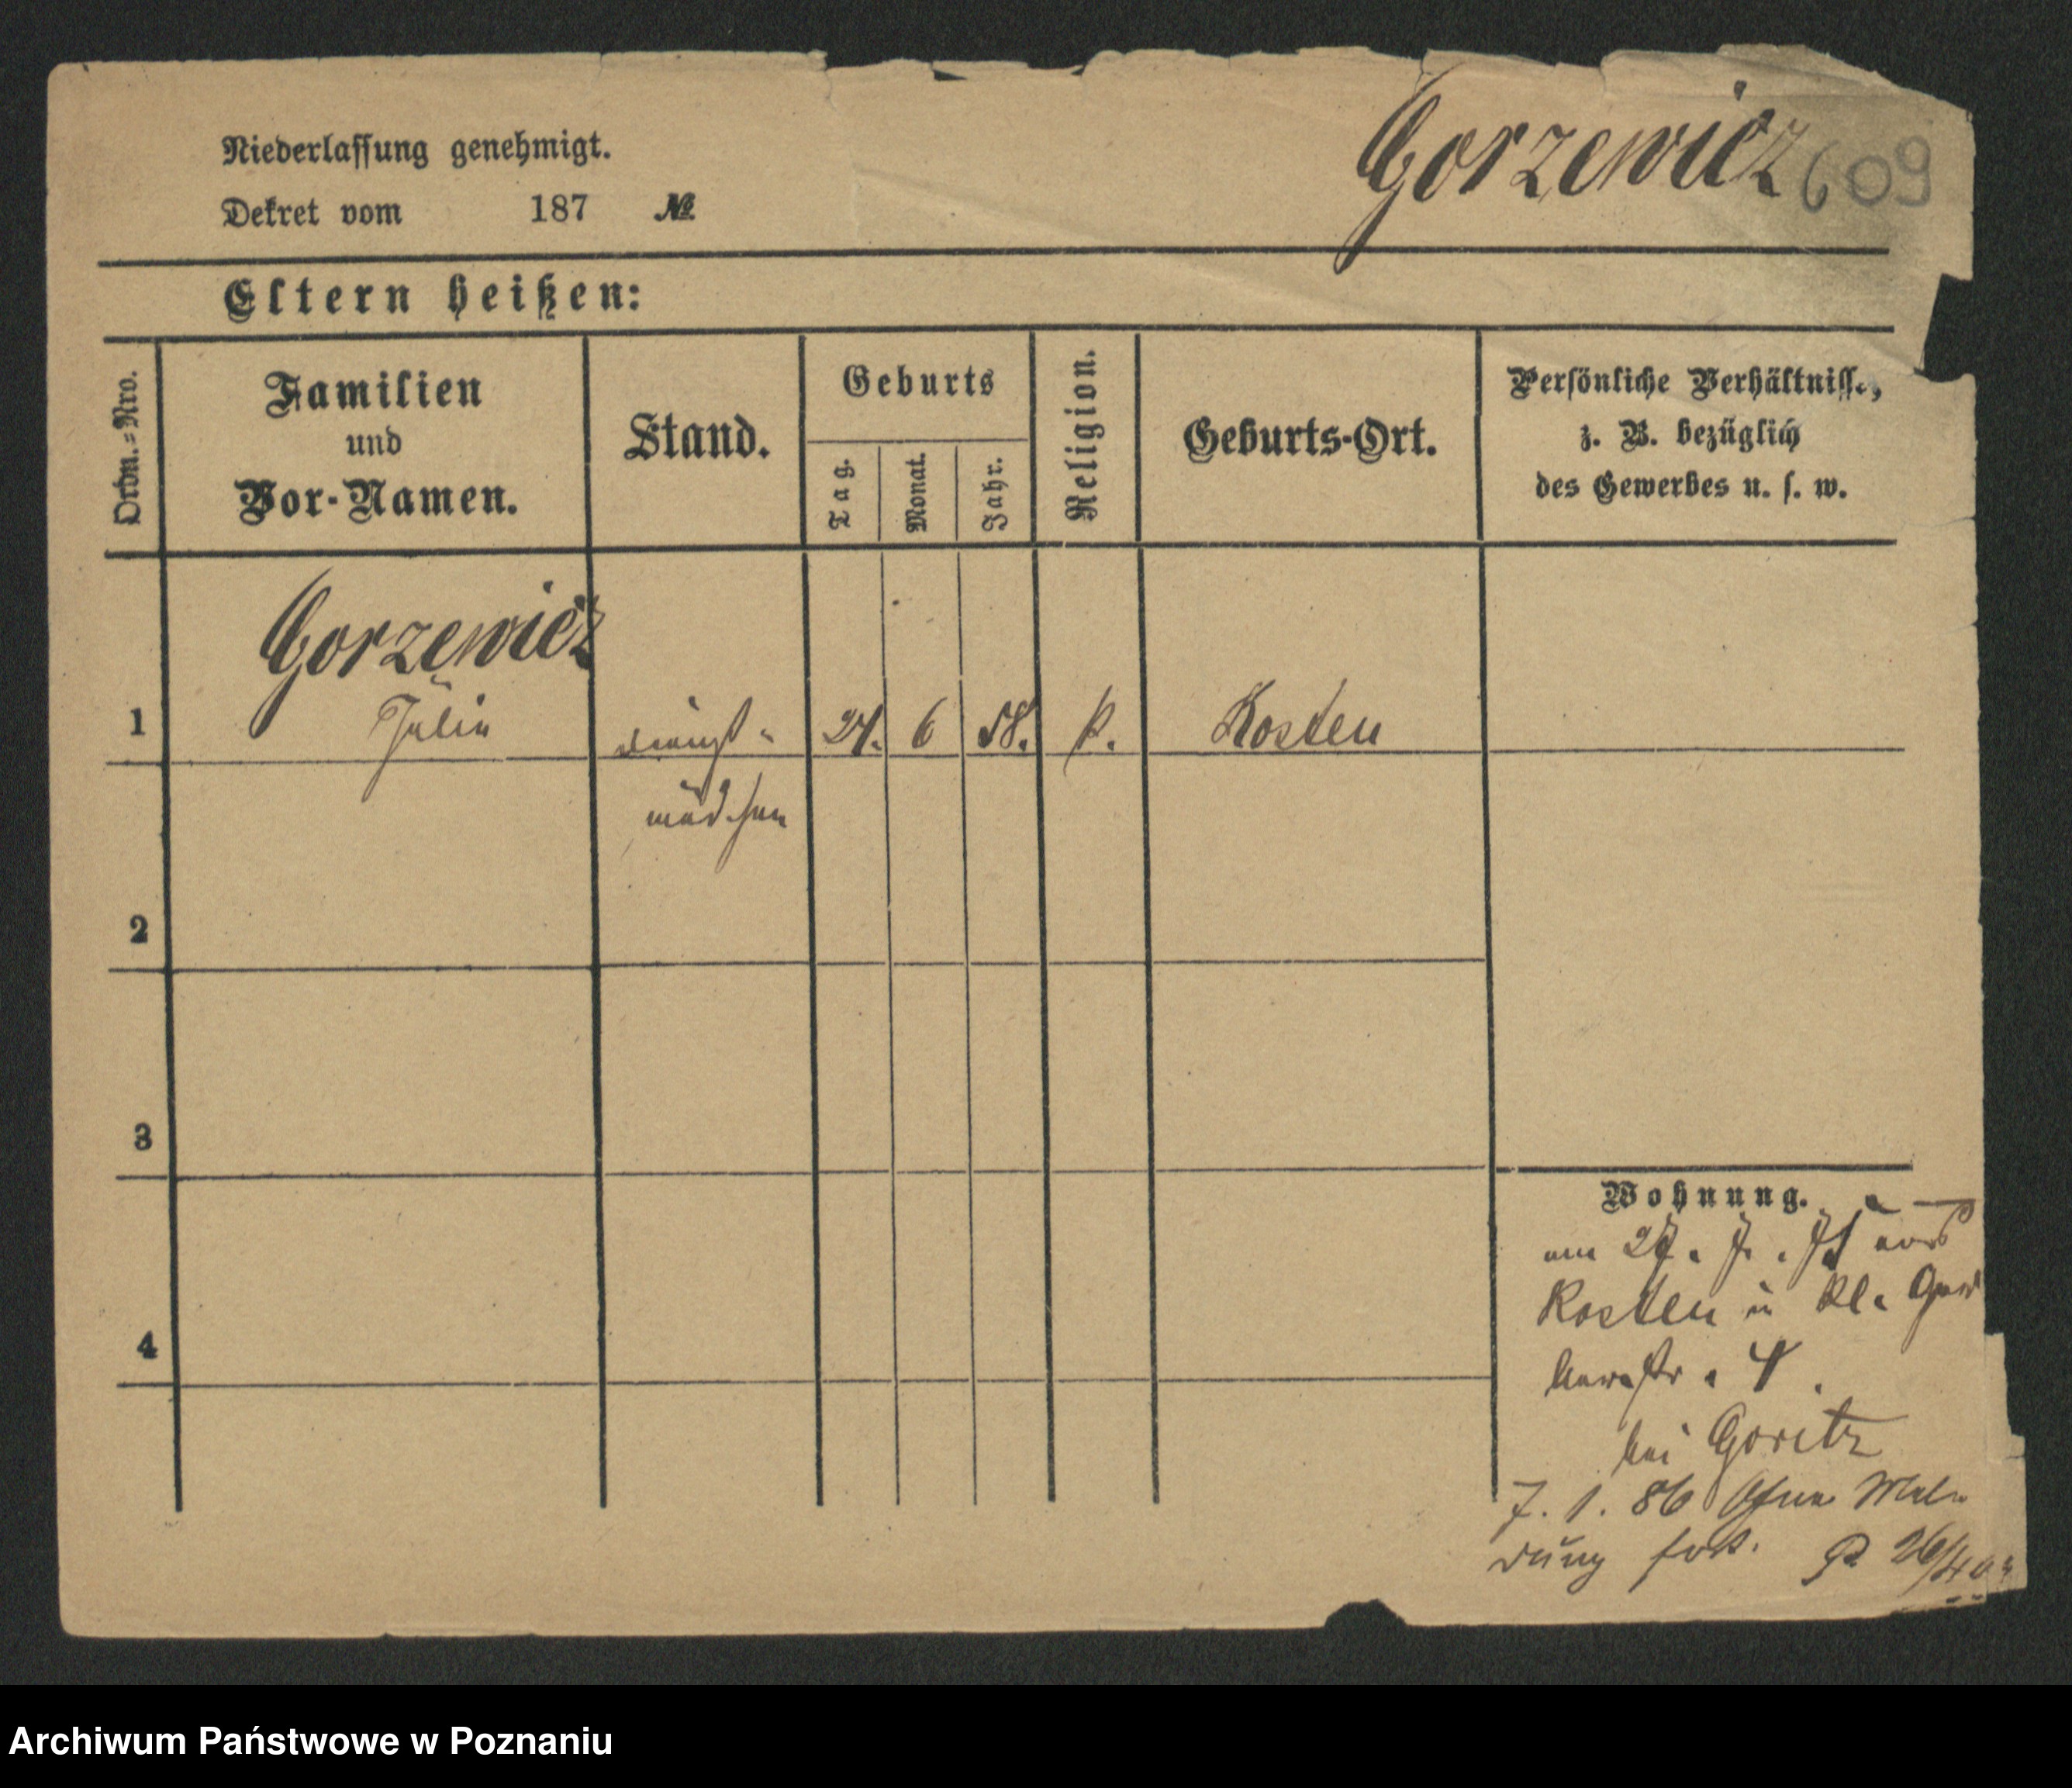 Niederlassung genehmigt.
Dekret vom 187 №
Gorzewicz 609
Eltern heißen:
Ordn.=Nro.
Familien
und
Vor-Namen.
Stand.
Geburts
Tag.
Monat.
Jahr.
Religion.
Geburts-Ort.
Persönliche Verhältnisse,
z. B. bezüglich
des Gewerbes u. s. w.
Gorzewicz
1 Julia Dienst- 24. 6 58. k. Kosten
mädchen
2
3
4
Wohnung.
am aus
Kosten in kl. Ger
berstr. 4.
bei Goritz
7. 1. 86 Ohne Mel-
dung fort.
Archiwum Państwowe w Poznaniu